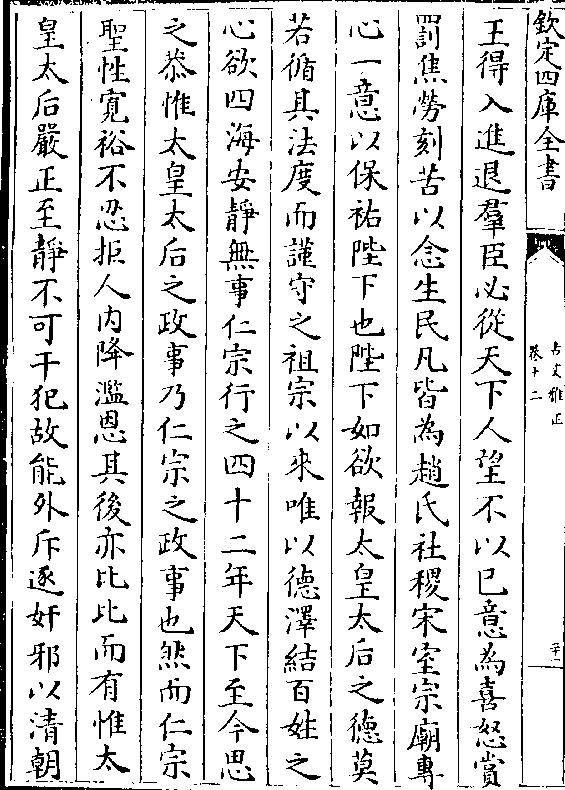 欽定四庫全書
古文雅正
卷十二
王得入進退羣臣必從天下人望不以已意為喜怒賞
罰焦勞刻苦以念生民凡皆為趙氏社稷宋室宗廟專
心一意以保祐陛下也陛下如欲報太皇太后之德莫
若循其法度而謹守之祖宗以來唯以德澤結百姓之
心欲四海安靜無事仁宗行之四十二年天下至今思
之恭惟太皇太后之政事乃仁宗之政事也然而仁宗
聖性寬裕不忍拒人内降濫恩其後亦比比而有惟太
皇太后嚴正至靜不可干犯故能外斥逐奸邪以清朝